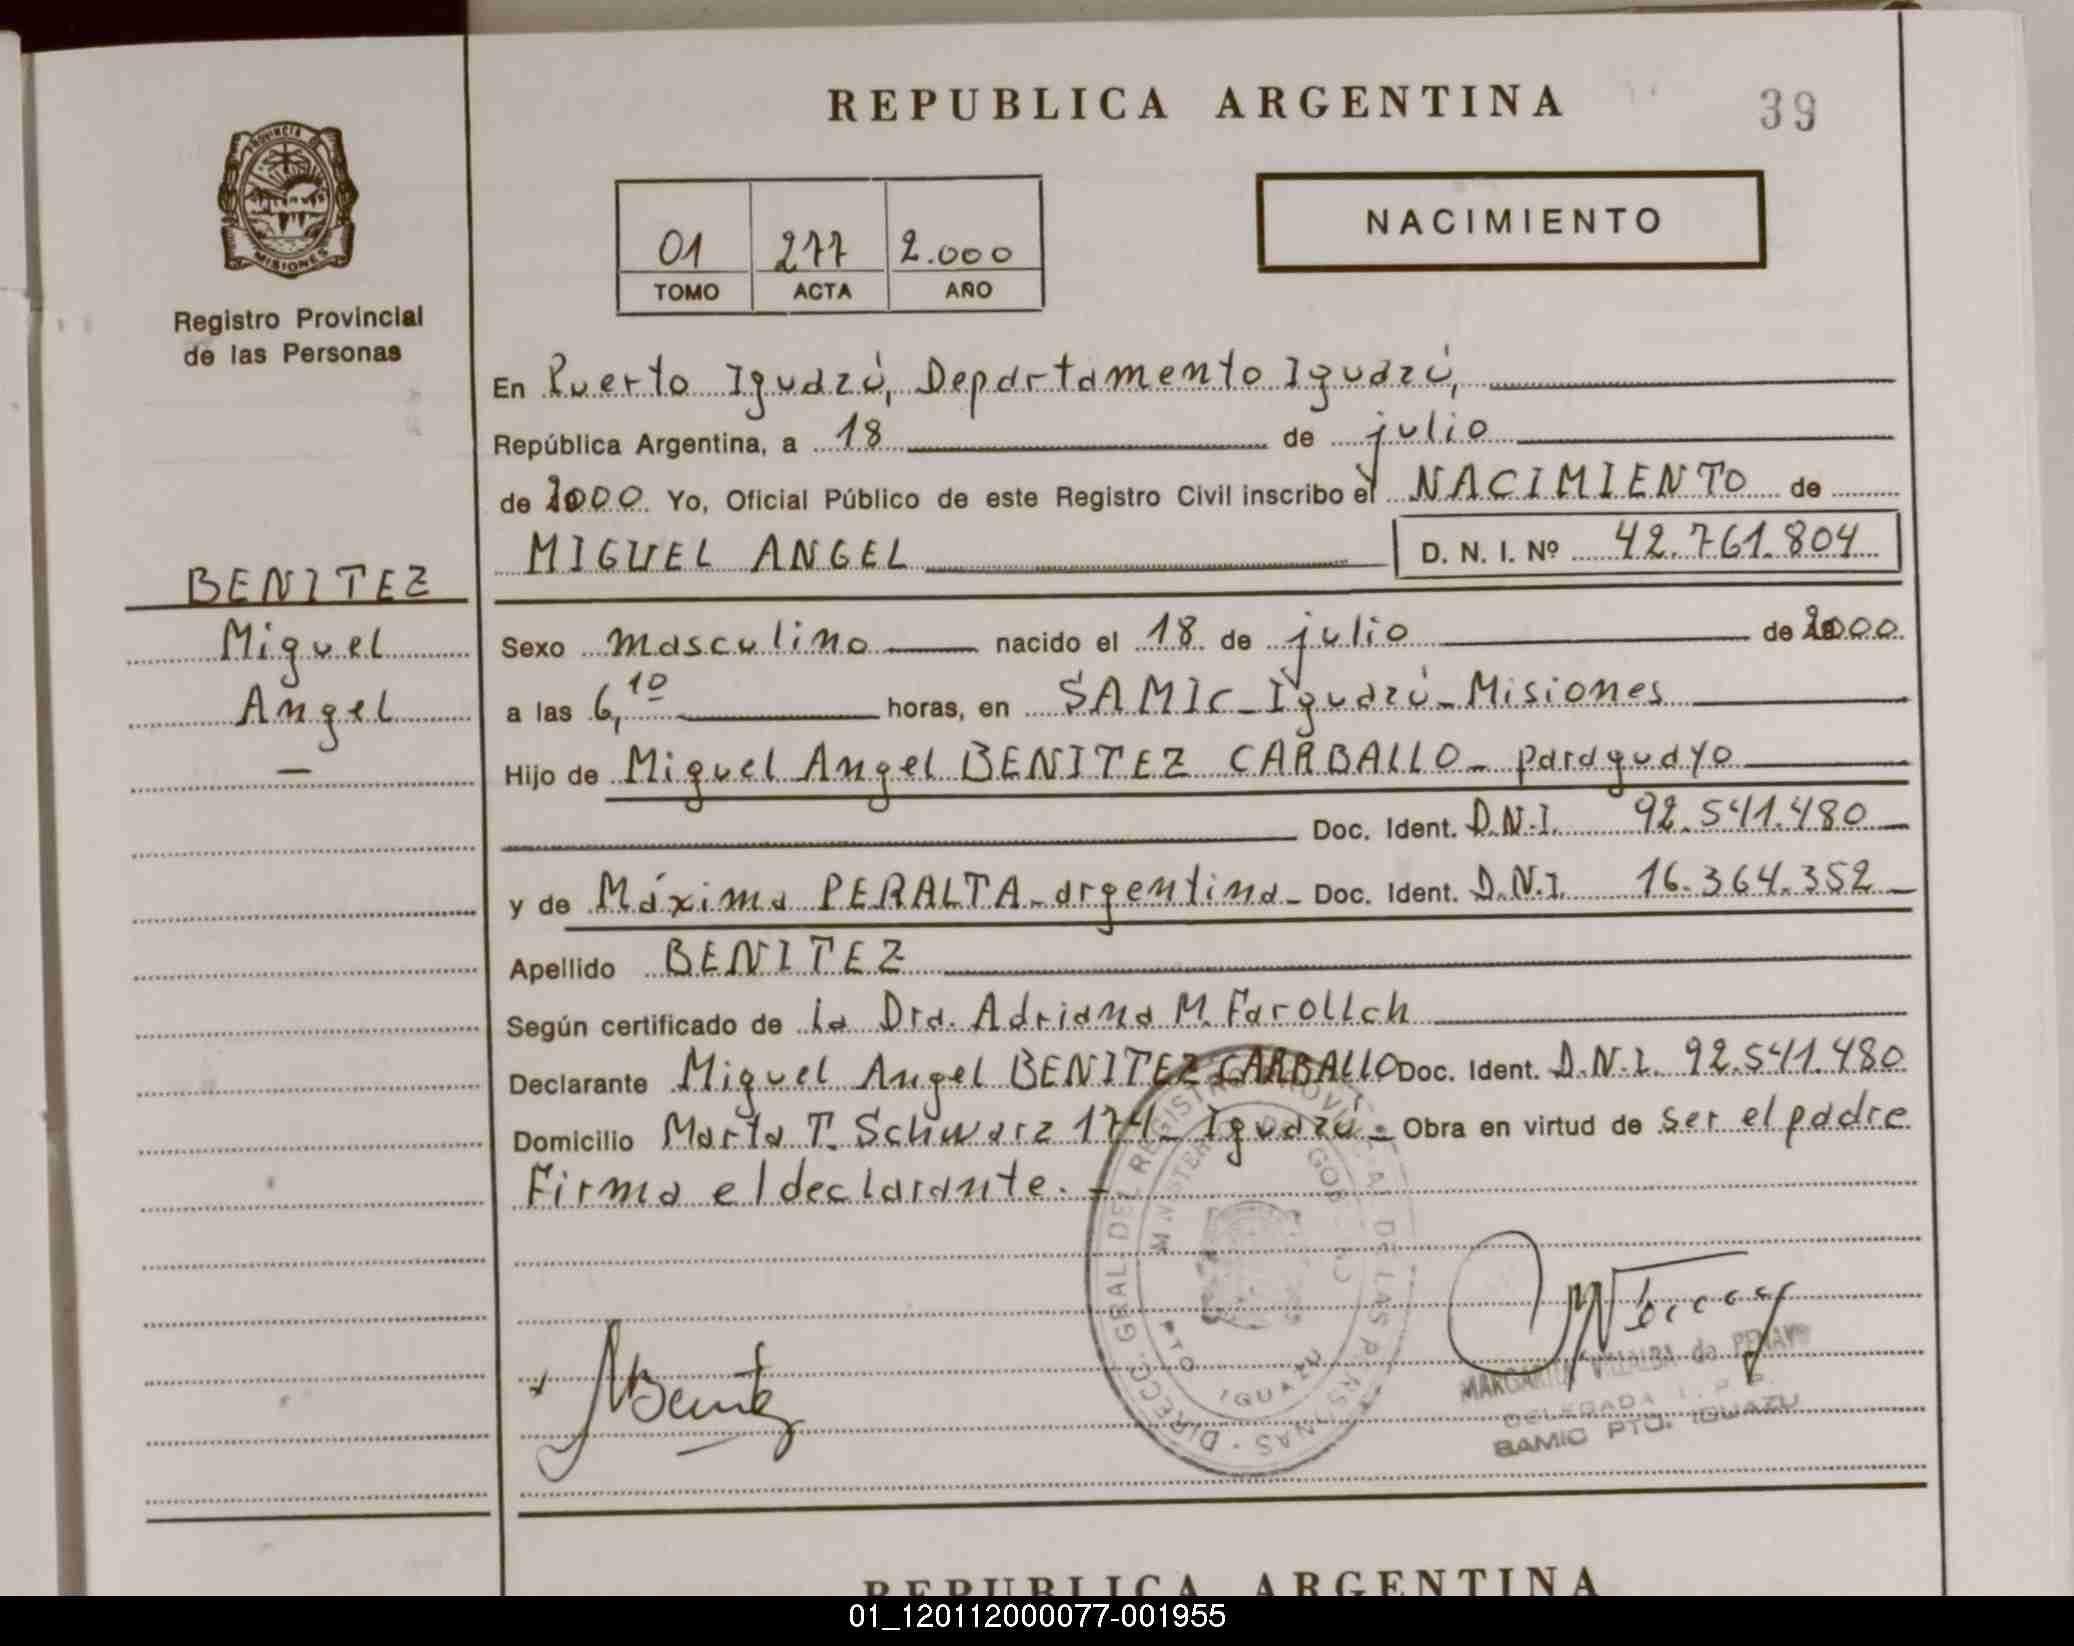 REPUBLICA ARGENTINA
39
PROVINCIA D
MISIONES
Registro Provincial
de las Personas
01 277 2.000
TOMO ACTA AÑO
NACIMIENTO
En Puerto Iguazú, Departamento Iguazú,
República Argentina, a 18 de julio
de 2000 Yo, Oficial Público de este Registro Civil inscribo el NACIMIENTO de
MIGUEL ANGEL D. N. I. Nº 42.761.804
BENITEZ
Miguel
Angel
Sexo masculino nacido el 18 de julio de 2000
a las 6,10 horas, en SAMIC - Iguazú - Misiones
Hijo de Miguel Angel BENITEZ CARBALLO - paraguayo
Doc. Ident. D.N.I. 92.541.480
y de Máxima PERALTA - argentina - Doc. Ident. D.N.I. 16.364.352
Apellido BENITEZ
Según certificado de la Dra. Adriana M. 
Declarante Miguel Angel BENITEZ CARBALLO Doc. Ident. D.N.I. 92.541.480
Domicilio Marta T. Schwarz 174 - Iguazú - Obra en virtud de ser el padre
Firma el declarante. -
DIRECC. GRAL. DEL REGISTRO PROVINCIAL DE LAS PERSONAS
MINISTERIO GOB
PTO IGUAZU
Benitez
MARGARITA VILLALBA de
DELEGADA
SAMIC PTO. IGUAZU
REPUBLICA ARGENTINA
01_120112000077-001955